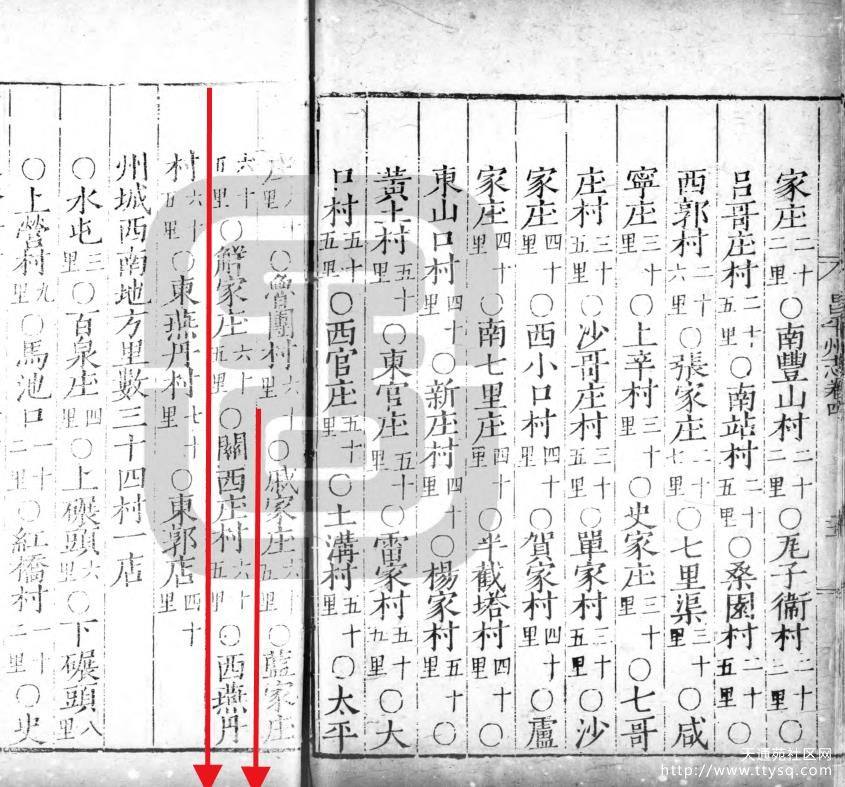 家庄二十二里〇南豐山村二十二里〇瓦子衕村二十二里〇
吕哥庄村二十五里〇南站村二十五里〇桑園村二十五里〇
西郭村二十六里〇張家庄二十七里〇七里渠三十里〇咸
寧庄三十里〇上辛村三十里〇史家庄三十里〇七哥
庄村三十五里〇沙哥庄村三十五里〇單家村三十五里〇沙
家庄四十里〇西小口村四十里〇賀家村四十里〇盧
家庄四十里〇南七里庄四十里〇半截塔村四十里〇
東山口村四十里〇新庄村四十里〇楊家村五十里〇
黄土村五十里〇東官庄五十里〇雷家村五十九里〇大
口村五十五里〇西官庄五十里〇土溝村五十里〇太平
庄六十里〇魯疃村六十里〇戚家庄六十五里〇藍家庄
六十五里〇觧家庄六十五里〇關西庄村六十五里〇西燕丹
村六十五里〇東燕丹村七十里〇東郭店四十里
州城西南地方里數三十四村一店
〇水屯三里〇百泉庄四里〇上碾頭六里〇下碾頭八里
〇上營村九里〇馬池口十二里〇紅橋村十二里〇史
昌平州志卷四
天通苑社区网
http://www.ttysq.com